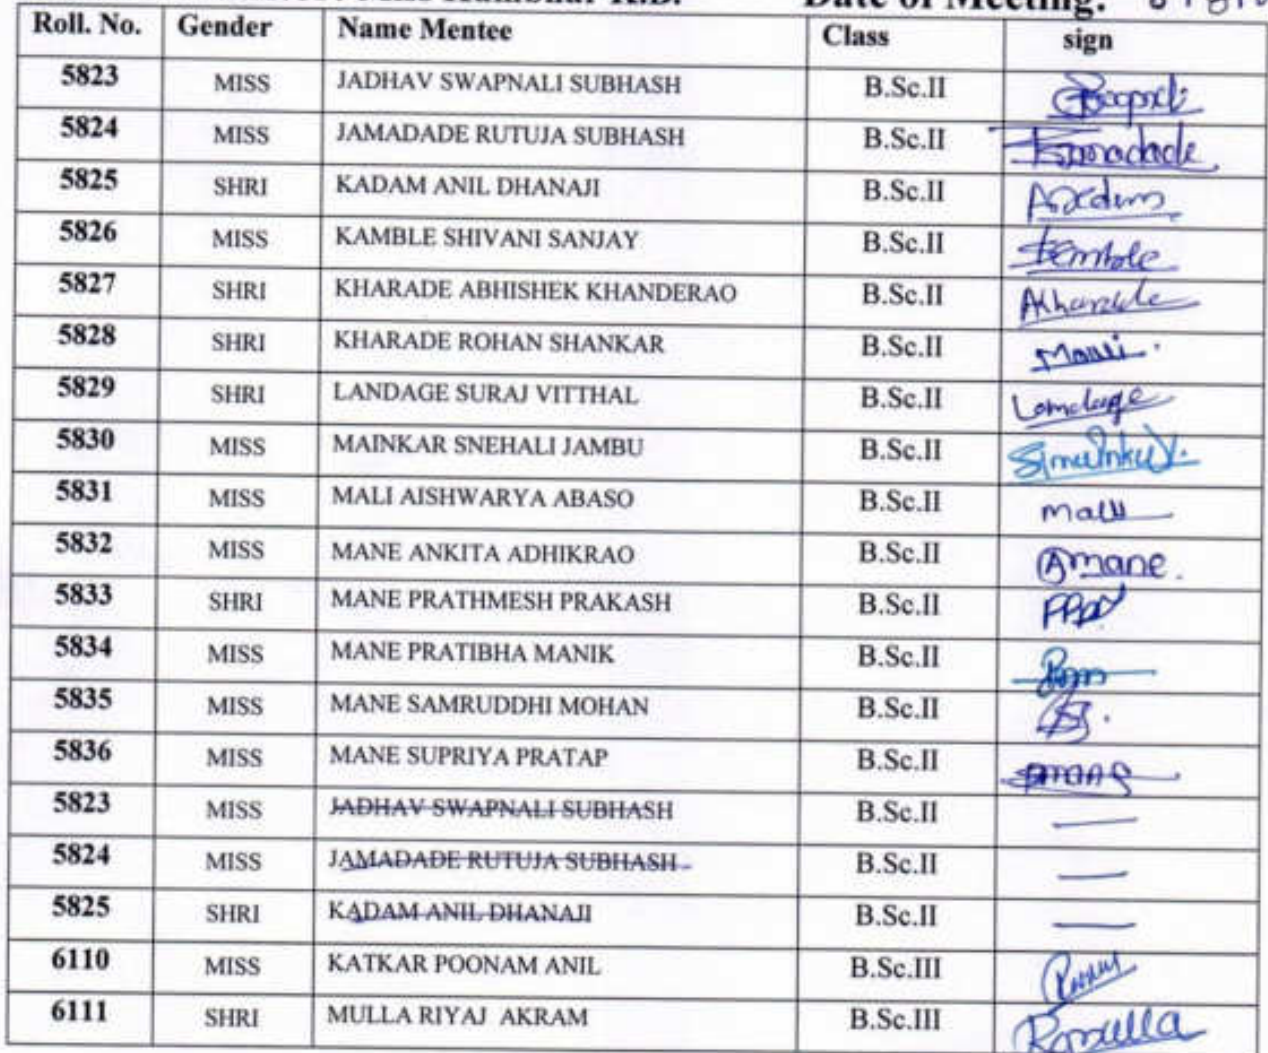 Date of Meeting:
Roll. No. Gender Name Mentee Class sign
5823 MISS JADHAV SWAPNALI SUBHASH B.Sc.II
5824 MISS JAMADADE RUTUJA SUBHASH B.Sc.II Jamadade
5825 SHRI KADAM ANIL DHANAJI B.Sc.II
5826 MISS KAMBLE SHIVANI SANJAY B.Sc.II
5827 SHRI KHARADE ABHISHEK KHANDERAO B.Sc.II AKharade
5828 SHRI KHARADE ROHAN SHANKAR B.Sc.II
5829 SHRI LANDAGE SURAJ VITTHAL B.Sc.II Landage
5830 MISS MAINKAR SNEHALI JAMBU B.Sc.II
5831 MISS MALI AISHWARYA ABASO B.Sc.II Mali
5832 MISS MANE ANKITA ADHIKRAO B.Sc.II Amane.
5833 SHRI MANE PRATHMESH PRAKASH B.Sc.II
5834 MISS MANE PRATIBHA MANIK B.Sc.II
5835 MISS MANE SAMRUDDHI MOHAN B.Sc.II
5836 MISS MANE SUPRIYA PRATAP B.Sc.II
5823 MISS JADHAV SWAPNALI SUBHASH B.Sc.II —
5824 MISS JAMADADE RUTUJA SUBHASH B.Sc.II —
5825 SHRI KADAM ANIL DHANAJI B.Sc.II —
6110 MISS KATKAR POONAM ANIL B.Sc.III
6111 SHRI MULLA RIYAJ AKRAM B.Sc.III Rmulla